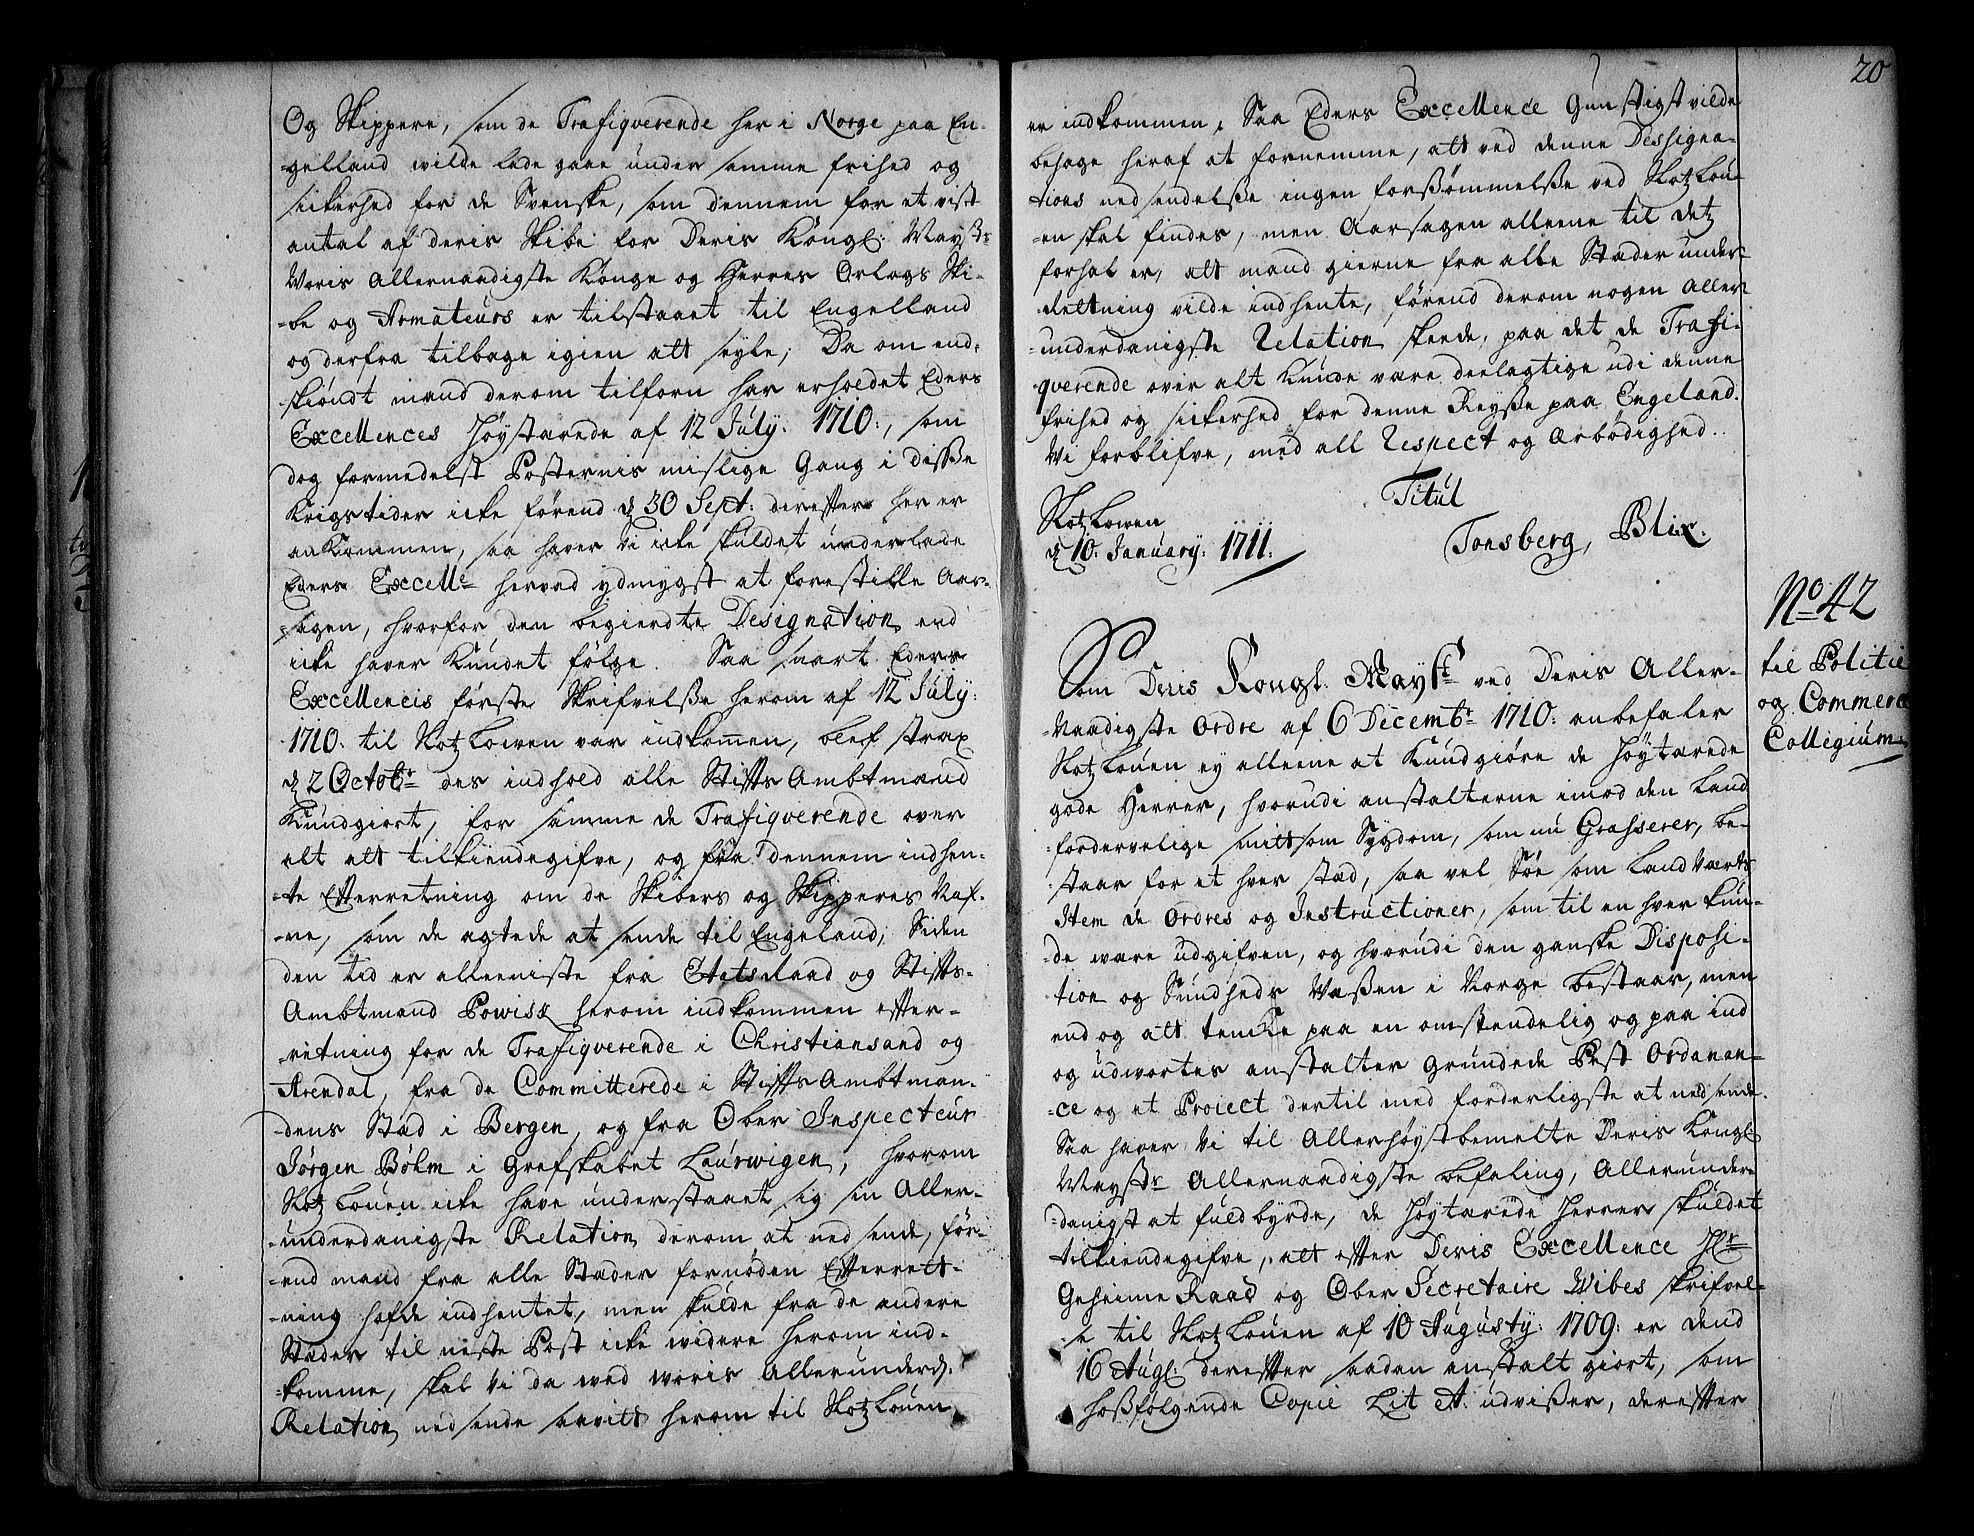 Og Skippere, som de Trafiqverende her i Norge paa En-
-gelland wilde lade gaae under samme frihed og
sickerhed for de Svenske, som dennem for et vist
antal af deris Skibe for Deris Kongl: Mayßt:
Woris Allernaadigste Konge og Herres Orlogs Ski-
-be og Armateurs er tilstaaet til Engelland
og derfra tilbage igien att seyle; Da om end-
skiøndt mand derom tilforn har erholdet Eders
Excellences Høystærede af 12 July: 1710:, som
dog formedelst Posternis mislige Gang i disße
Krigstider icke førend d 30 Sept: derefter her er
ankommen, saa haver Vi icke skuldet underlade
Eders Excelle hervad ydmygst at forestille Aar-
-sagen, hvorfor den begierdte Designation end
icke haver Kundet følge. Saa snart Eders
Excellencis første Skrifvelße herom af 12 July:
1710. til Slotz Lowen var indkommen, blef strax
d 2 Octobr des indhold alle StiftsAmbtmænd
Kundgiort, for samme de Trafiqverende over
alt att tilkiendegifve, og fra dennem indhen-
-te Efterretning om de Skibers og Skipperes Naf-
-ne, som de agtede at sende til Engeland; Siden
den tid er alleeniste fra EtatsRaad og Stifts-
Ambtmand Powisk herom indkommen efter-
-retning for de Trafiqverende i Christiansand og
Arendal, fra de Committerede i StiftsAmbtman-
-dens Stad i Bergen, og fra Ober Inspecteur
Jørgen Bøhm i Grefskabet Laurwigen, hvorom
Slotz Louen icke have understaaet sig sin Aller-
-underdanigste Relation derom at nedsende, før-
-end mand fra alle Stæder fornøden Efterrett-
-ning hafde indhentet, men skulde fra de andere
Stæder til neste Post icke widere herom ind-
-komme, skal Vi da med woris Allerunderd:
Relation nedsende hvvitt herom til Slotz Louen
20
er indkommen, Saa Eders Excellence Gunstigst vilde
behage heraf at fornemme, att ved denne Dessigna-
tions nedsendelße ingen forßømmelße ved Slotz Lou-
-en skal findes, men Aarsagen alleene til detz
forhal er, att mand gierne fra alle Stæder under-
-rettning vilde indhente, førend derom nogen aller-
-underdanigste Relation skeede, paa det de Trafi-
qverende over alt Kunde være deelagtige udi denne
frihed og sickerhed for denne Reyße paa Engeland.
Vi forblifve, med all Respect og Ærbødighed.
Titul
Slotz Lowen
d 10. January: 1711.
Tonsberg, Blix.
No 42
til Politie
og Commerce
Collegium
Som Deris Kongl. Mayst ved Deris Aller-
-Naadigste Ordre af 6 Decembr 1710: anbefaler
Slotz Louen ey alleene at Kundgiøre de Høytærede
gode Herrer, hvorudi anstalterne imod den Land
fordervelige smittsom Sygdom, som nu Grasserer, be-
staar for et hver stæd, saa vel Søe som Land Værts
Item de Ordres og Instructioner, som til en hver Kun-
-de ware udgifven, og hvorudi den ganske Disposi-
-tion og Sundheds Waßen i Norge bestaar, men
end og att tencke paa en omstendelig og paa ind
og udwortes anstalter Grundede Pest Ordanan-
-ce og et Proiect dertil med forderligste at nedsende.
Saa haver Vi til Allerhøystbemelte Deris Kongl:
Maysts Allernaadigste befaling, Allerunder-
-danigst at fuldbyrde, de Høytærede Herrer skuldet
tilkiendegifve, att efter Deris Excellence Hr
Geheime Raad og Ober Secretaire Wibes skrifvel-
-e til Slotz Louen af 10 Augusty: 1709: er dend
16 Augl: derefter saadan anstalt giort, som
hoßfølgende Copie Lit A. udvißer, derefter